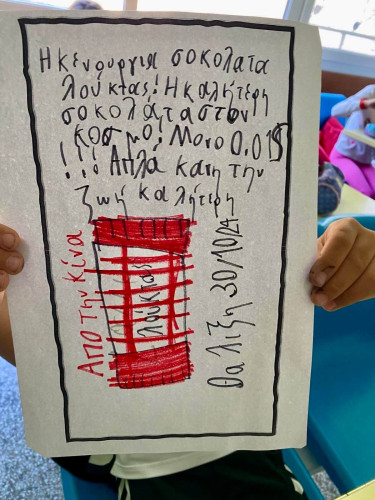 Η κενουργια σοκολατα
λούκτας! Η καλήτερη
σοκολάτα στον
κοσμο! Μονο 0.01$
!!! Απλά κανη την
ζωή καλήτερη
ΑΠΟ ΤΗΝ ΚίΝΑ
λούκτας
θα λιξη 30/10/24